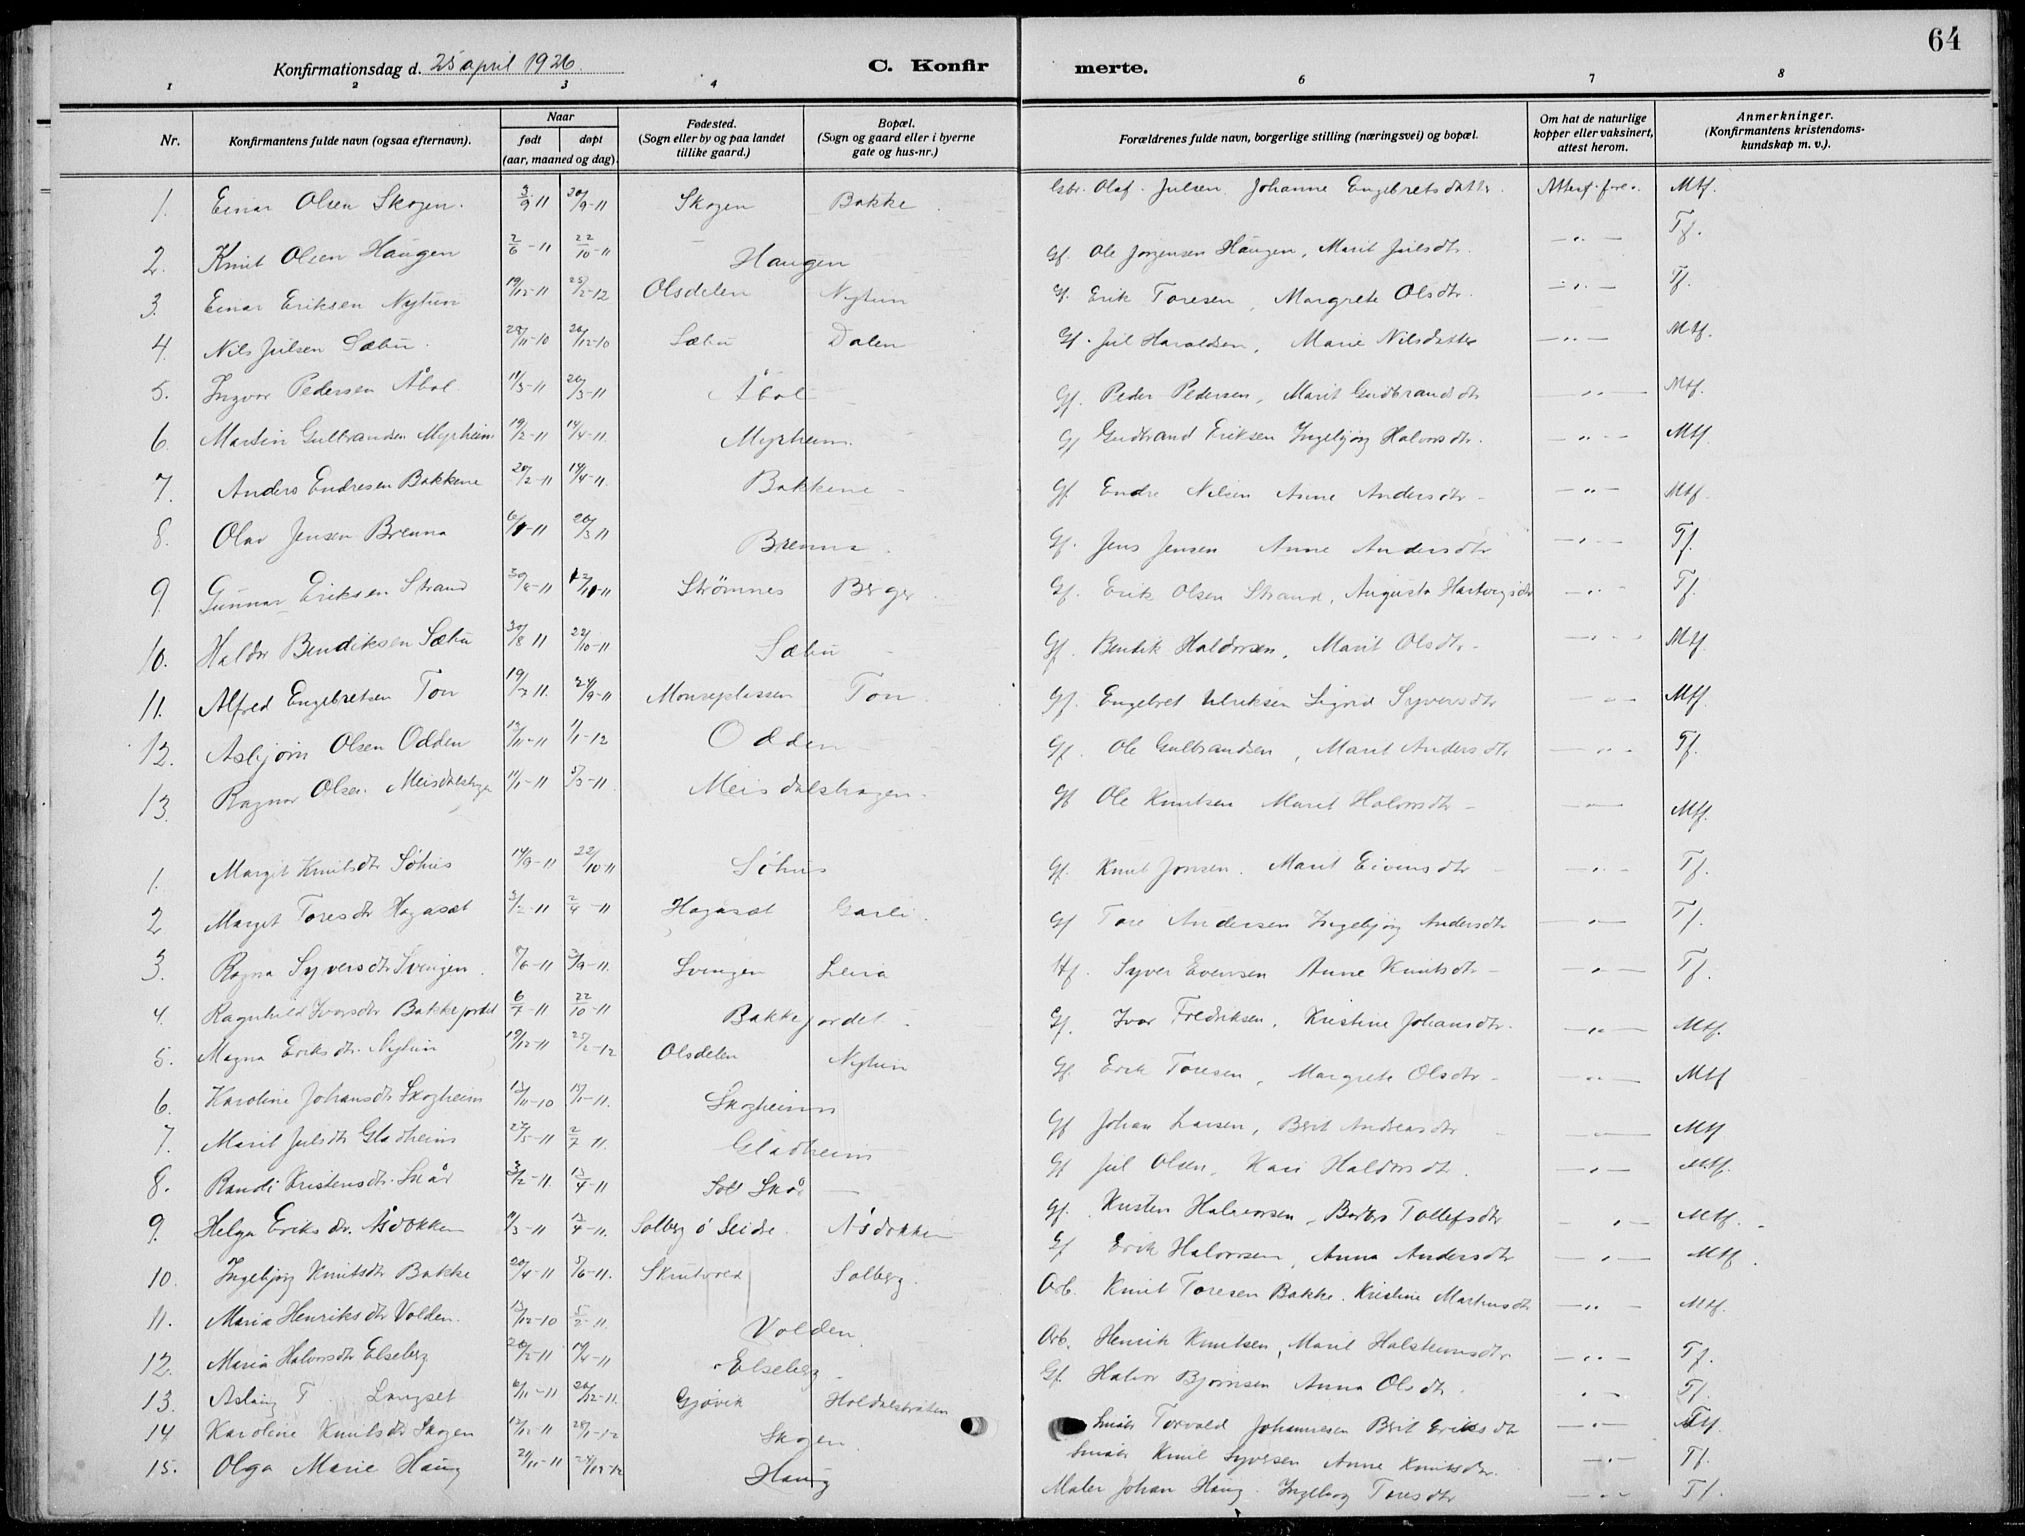 64
Konfirmationsdag d. 25 april 1926.
C. Konfir merte.
1 2 3 4 6 7 8
Nr. Konfirmantens fulde navn (ogsaa efternavn). Naar født døpt (aar, maaned og dag). Fødested. (Sogn eller by og paa landet tillike gaard.) Bopæl. (Sogn og gaard eller i byerne gate og hus-nr.) Forældrenes fulde navn, borgerlige stilling (næringsvei) og bopæl. Om hat de naturlige kopper eller vaksinert, attest herom. Anmerkninger. (Konfirmantens kristendoms-kundskap m. v.).
1. Einar Olsen Skogen. 3/9 11 20/9-11 Skogen Bakke Olaf Julsen, Johanne Engebretsdatter. Attest fore. Mtf.
2. Knut Olsen Haugen 2/6-11 22/10-11 Haugen Gf. Ole Jørgensen Haugen, Marit Julsdtr. —"— Tf.
3. Einar Eriksen Nytun 19/12-11 25/2-12 Olsdelen Nytun Gf. Erik Toresen, Margrete Olsdtr. —"— Tf.
4. Nils Julsen Sæbu. 28/11-10 26/12-10 Sæbu Dalen Gf. Jul Haraldsen, Marie Nilsdatter —"— Mtf.
5. Ingvar Pedersen Åbol. 11/3-11 26/3-11 Åbol Gf. Peder Pedersen, Marit Gudbrandsdtr —"— Mtf.
6. Martin Gulbrandsen Myrheim 19/2-11 14/4-11. Myrheim. Gf Gudbrand Eriksen Ingebjørg Halvorsdtr. —"— Mtf.
7. Anders Endresen Bakkene 20/2-11 14/4-11. Bakkene Gf Endre Nilsen Anne Andersdtr —"— Mtf.
8. Olav Jensen Brenna 6/1-11 26/3 11 Brenna Gf. Jens Jensen Anne Andersdtr —"— Tf.
9 Gunnar Eriksen Strand 30/8-11 Strømnes Berger Gf. Erik Olsen Strand, Augusta Hartvigsdtr —"— Tf.
10. Haldor Bendiksen Sæbu 30/8 11 22/10-11 Sæbu Gf. Bentik Haldorsen, Marit Olsdtr —"— Mtf.
11. Alfred Engebretsen Ton 19/7 11. 24/9-11 Monseplassen Ton Gf. Engebret Ulriksen Sigrid Syversdtr —"— Mtf.
12. Asbjørn Olsen Odden 12/11-11 1/1-12 Odden Gf. Ole Gulbrandsen, Marit Andersdtr —"— Tf.
13. Ragnar Olsen Meisdalshagen 11/1-11 5/3-11. Meisdalshagen Gf Ole Knutsen Marit Halvorsdtr —"— Mtf.
1. Margit Knutsdtr Søhus 14/9-11 22/10-11 Søhus Gf. Knut Jonsen. Marit Eivindsdtr —"— Tf.
2 Margit Toresdtr Hagaset 3/2-11 2/4-11 Hagaset Garli. Gf Tore Andersen Ingebjørg Andersdtr —"— Tf.
3. Ragna Syversdtr Svingen. 8/6-11 3/9-11. Svingen Leira Hf. Syver Evensen Anne Knutsdtr —"— Tf.
4. Ragnhild Ivarsdtr Bakkejordet 6/7-11 22/10-11 Bakkejordet Gf. Ivar Fredriksen, Kristine Johansdtr. —"— Mtf.
5. Magna Eriksdtr. Nytun 19/12-11 25/2-12 Olsdelen Nytun Gf. Erik Toresen, Margrete Olsdtr —"— Mtf
6. Karoline Johansdtr Skogheim 13/11-10 15/1-11. Skogheim Gf Johan Larsen, Berit Andreasdtr —"— Mtf
7. Marit Julsdtr Gladheim 24/5-11 2/7 11. Gladheim Gf Jul Olsen, Kari Haldorsdtr. —"— Mtf.
8. Randi Kristensdtr. Skår 3/2-11. 13/4-11 Skår Gf. Kristen Halvorsen, Barbro Tollefsdtr —"— Mtf.
9. Helga Eriksdtr. Åsdokken 11/3-11 13/4-11. Solberg ø Slidre. Åsdokken Gf Erik Halvorsen, Anna Andersdtr —"— Mtf.
10. Ingebjørg Knutsdtr Bakke 20/4-11 5/6-11. Skrutvold Solberg. Arb. Knut Toresen Bakke. Kristine Martinsdtr —"— Mtf.
11. Maria Henriksdtr Volden. 13/12-10 5/2-11. Volden Arb. Henrik Knutsen, Marit Halsteinsdtr. —"— Tf.
12. Maria Halvorsdtr Elseberg 20/2-11 14/4-11 Elseberg Gf. Halvor Bjørnsen Anna Olsdtr. " Tf.
13. Aslaug T. Langset 6/11-11 26/12-11. Gjøvik Holdalsbråten Småbr Torvald Johannesen Berit Eriksdtr —"— Mtf.
14 Karoline Knutsdtr Skogen 13/12-11 28/1-12 Skogen. Småbr Knut Syversen Anne Knutsdtr. —"— Tf.
15. Olga Marie Haug Haug Maler Johan Haug. Ingeborg Toresdtr —"— Tf.